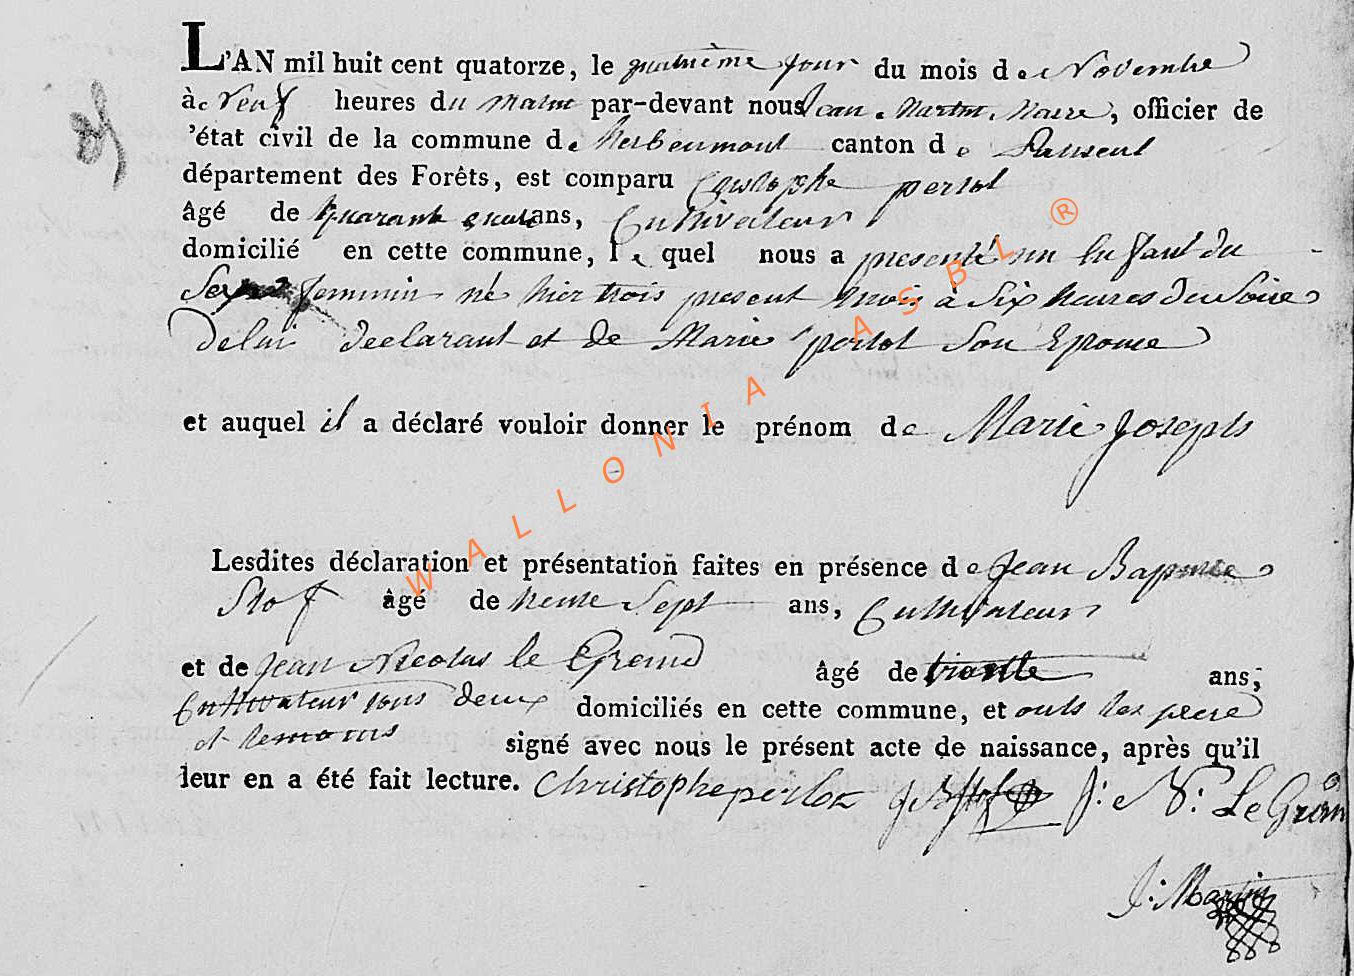 L'AN mil huit cent quatorze, le quatrième jour du mois de Novembre
à Neuf heures du matin par-devant nous Jean Martin Maire, officier de
'état civil de la commune de herbeumont canton de Paliseul
département des Forêts, est comparu Cristophe perlot
âgé de quarante quatre ans, Cultivateur
domicilié en cette commune, le quel nous a presenté un Enfant du
Sexe feminin né hier trois present mois à Six heures du Soire
De lui declarant et de Marie perlot Son Epouse
et auquel il a déclaré vouloir donner le prénom de Marie Joseph
Lesdites déclaration et présentation faites en présence de Jean Baptiste
Stof âgé de trente Sept ans, Cultivateur
et de Jean Nicolas le Grand âgé de trente ans;
Cultivateur tous deux domiciliés en cette commune, et onts les peere
et temoins signé avec nous le présent acte de naissance, après qu'il
leur en a été fait lecture. Christophe perlot J: N: Le Gran
J: Martin
WALLONIA ASBL ®